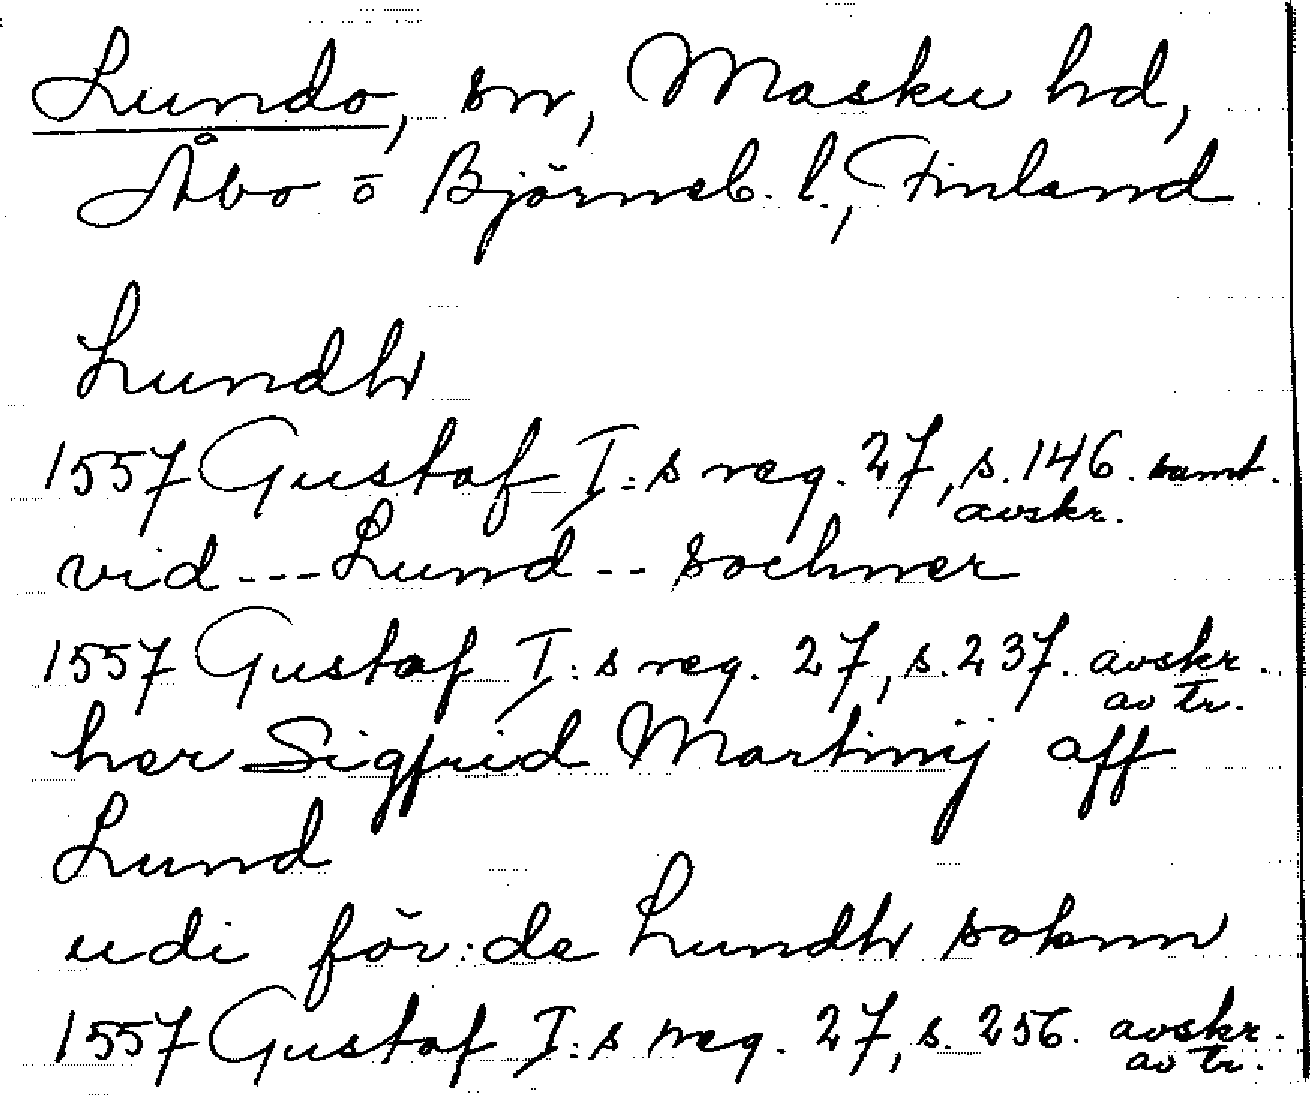 Lundo, sn, Masku hd,
Åbo o Björneb. l., Finland
Lundh
1557 Gustaf I:s reg. 27, s. 146. samt.
avskr.
vid --- Lund -- sochner
1557 Gustaf I:s reg. 27, s. 237. avskr.
av tr.
her Sigfrid Martinij aff
Lund
udi för:de Lundh soknn
1557 Gustaf I:s reg. 27, s. 256. avskr.
av tr.